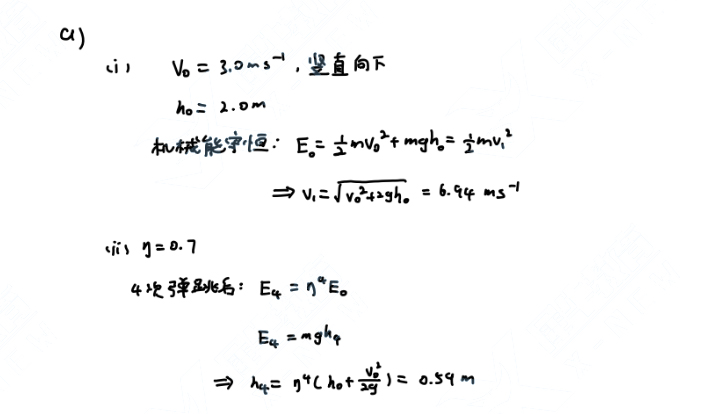 a)
(i) V₀ = 3.0 ms⁻¹, 竖直向下
h₀ = 2.0 m
机械能守恒: E₀ = ½mv₀² + mgh₀ = ½mv₁²
⇒ v₁ = √(v₀²+2gh₀) = 6.94 ms⁻¹
(ii) η = 0.7
4次弹跳后: E₄ = η⁴E₀
E₄ = mgh₄
⇒ h₄ = η⁴(h₀ + v₀²/2g) = 0.59 m